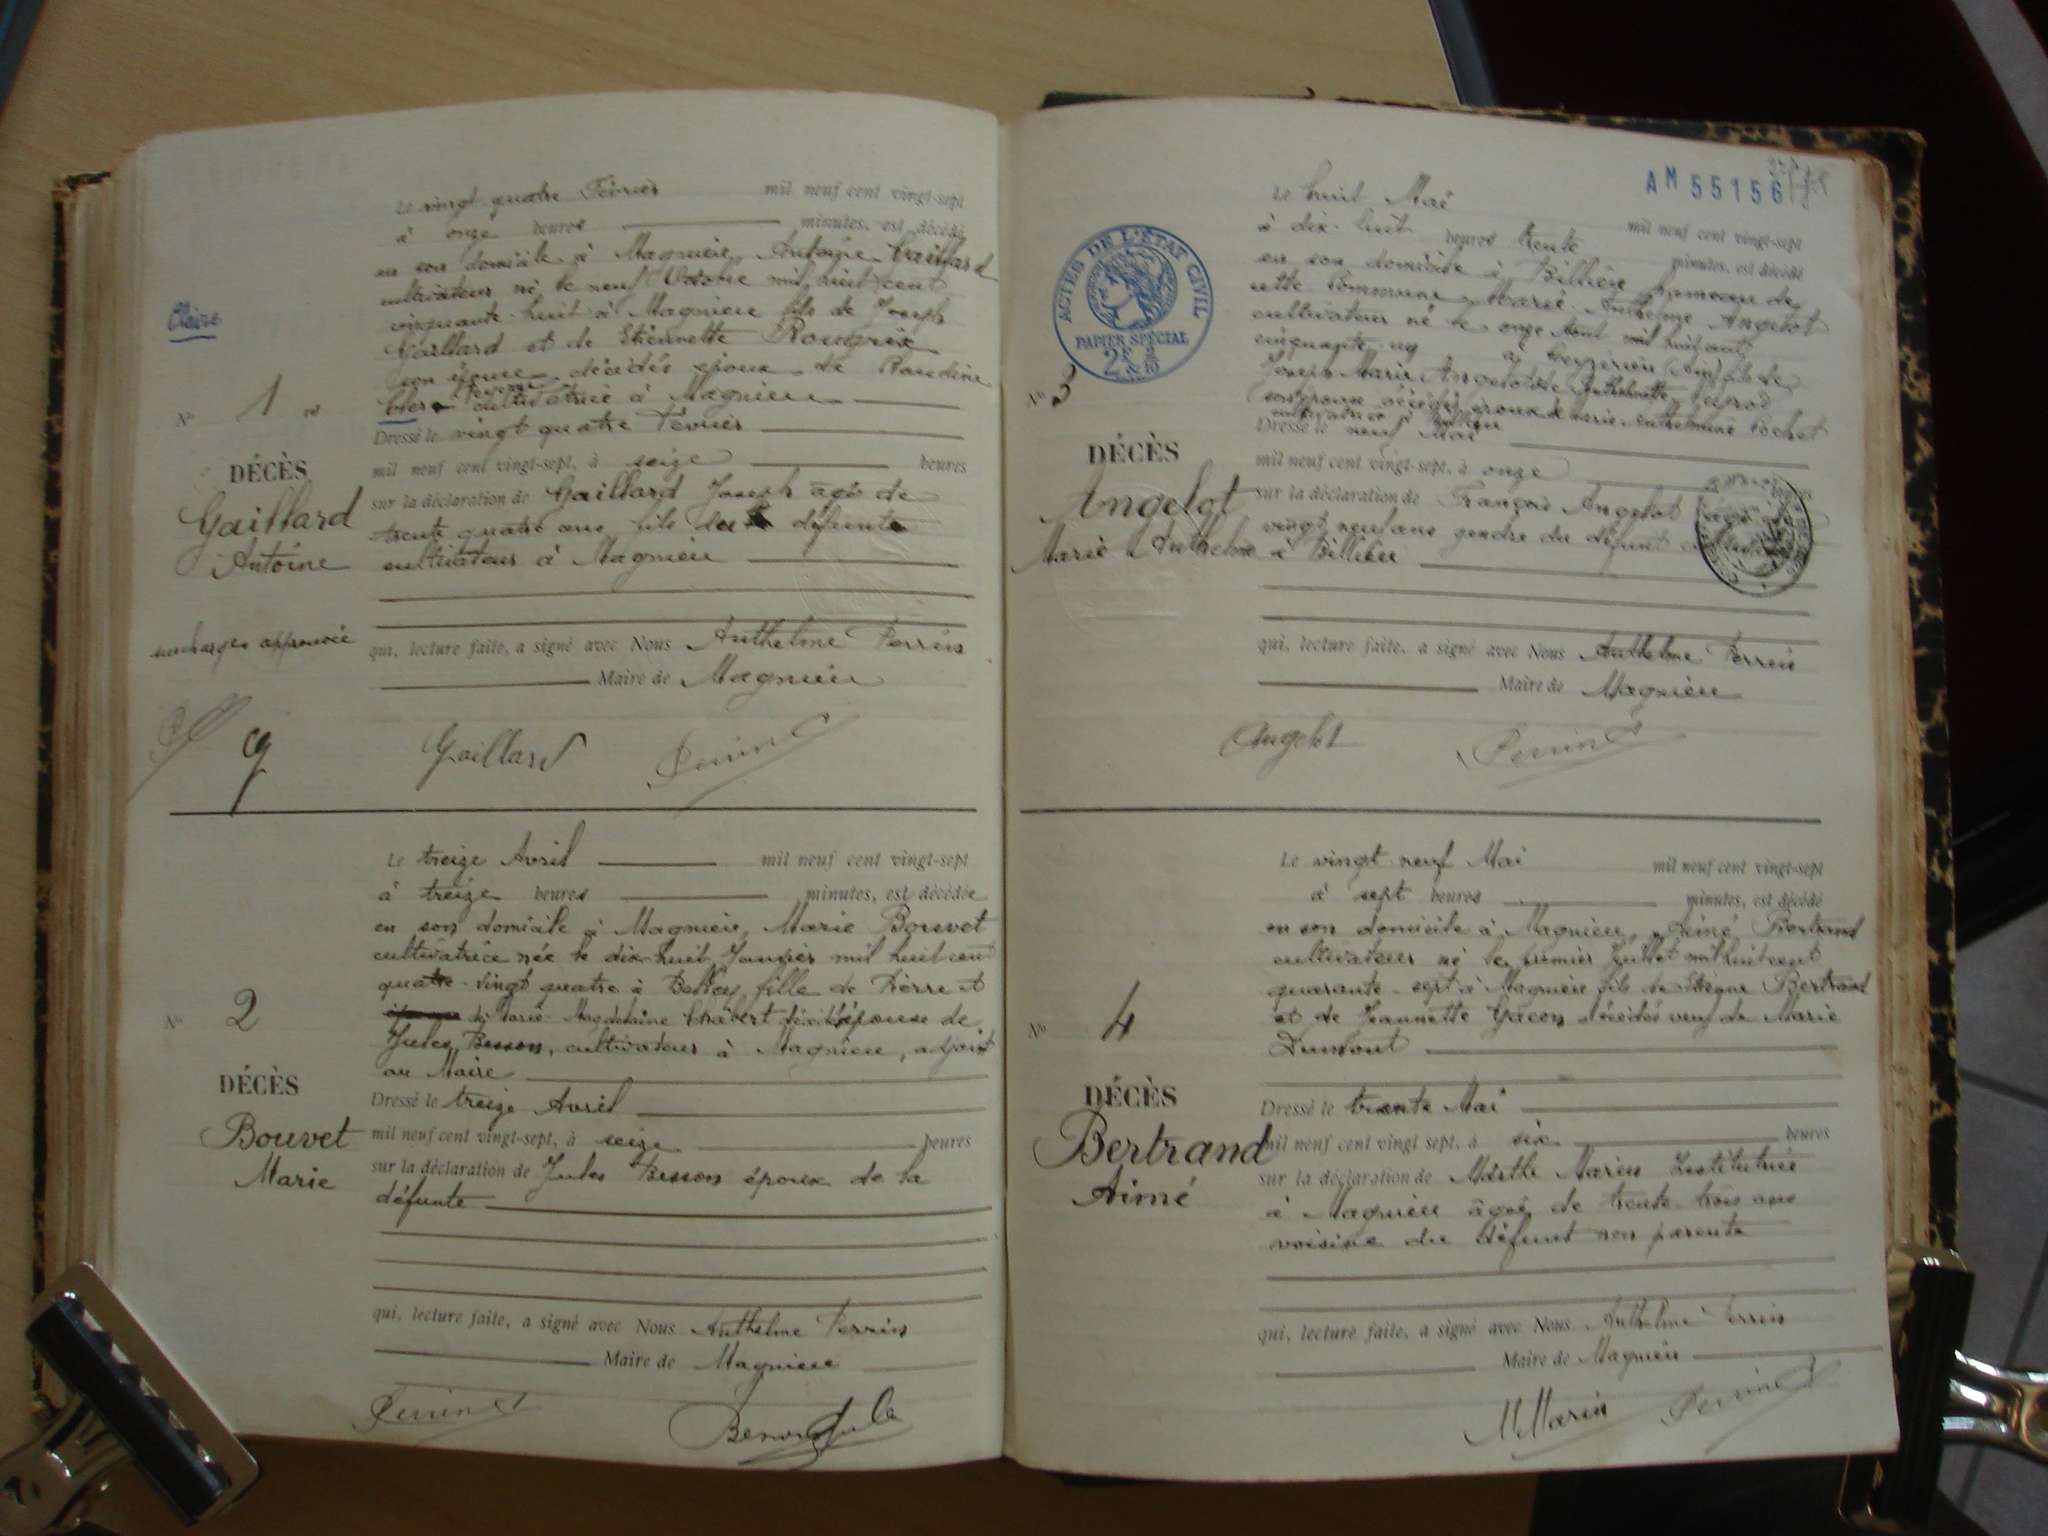 Le vingt quatre Février mil neuf cent vingt-sept
à onze heures minutes, est décédé
en son domicile à Magnieu, Antoine Gaillard
cultivateur né le neuf Octobre mil huit cent
cinquante-huit à Magnieu fils de Joseph
Gaillard et de Etiennette
son épouse décédés époux de
cultivatrice à Magnieu
N° 1
Dressé le vingt quatre Février
DÉCÈS
mil neuf cent vingt-sept, à seize heures
Gaillard
Antoine
sur la déclaration de Gaillard Joseph âgé de
trente quatre ans, fils du défunt
cultivateur à Magnieu
surcharges approuvée
qui, lecture faite, a signé avec Nous Anthelme Perrin
Maire de Magnieu
Gaillard Perrin
Le treize Avril mil neuf cent vingt-sept
à treize heures minutes, est décédée
en son domicile à Magnieu, Marie Bouvet
cultivatrice née le dix-huit Janvier mil huit cent
quatre-vingt quatre à Belley fille de Pierre et
de Marie Magdelaine Chabert épouse de
Jules Besson, cultivateur à Magnieu, adjoint
au Maire
N° 2
DÉCÈS
Bouvet
Marie
Dressé le treize Avril
mil neuf cent vingt-sept, à seize heures
sur la déclaration de Jules Besson époux de la
défunte
qui, lecture faite, a signé avec Nous Anthelme Perrin
Maire de Magnieu
Perrin
AM 55156
ACTES DE L'ÉTAT CIVIL
PAPIER SPÉCIAL
Le huit Mai
à dix-huit heures trente mil neuf cent vingt-sept
minutes, est décédé
en son domicile à Billieu hameau de
cette Commune Marie Anthelme Angelot
cultivateur né le onze Aout mil huit cent
cinquante-un à Ceyzérieu (Ain) fils de
Joseph Marie Angelot et de Anthelmette
son épouse décédés époux de Marie Anthelmine Cochet
cultivatrice à Billieu
N° 3
Dressé le neuf Mai
DÉCÈS
mil neuf cent vingt-sept, à onze heures
Angelot
Marie Anthelme
sur la déclaration de François Angelot âgé de
vingt neuf ans gendre du défunt
à Billieu
qui, lecture faite, a signé avec Nous Anthelme Perrin
Maire de Magnieu
Angelot Perrin
Le vingt-neuf Mai mil neuf cent vingt-sept
à sept heures minutes, est décédé
en son domicile à Magnieu, Aimé Bertrand
cultivateur né le premier Juillet mil huit cent
quarante-sept à Magnieu fils de Etienne Bertrand
et de Jeannette Gacon décédés veuf de Marie
Dumont
N° 4
DÉCÈS
Bertrand
Aimé
Dressé le trente Mai
mil neuf cent vingt sept, à six heures
sur la déclaration de Marthe Marin Institutrice
à Magnieu âgée de trente-trois ans
voisine du défunt non parente
qui, lecture faite, a signé avec Nous Anthelme Perrin
Maire de Magnieu
M Marin Perrin